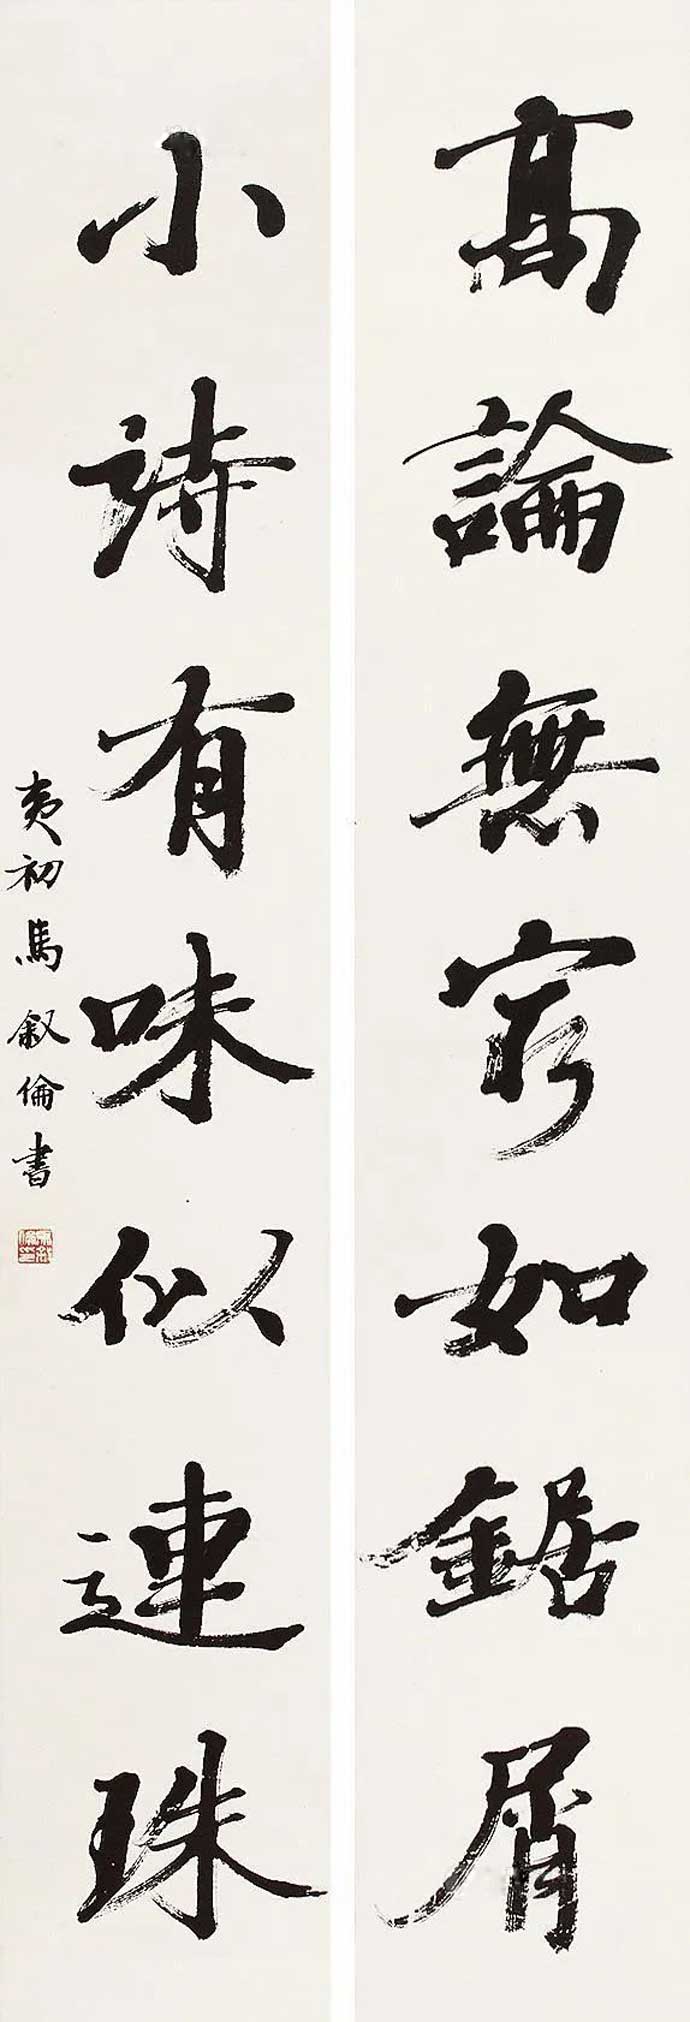 高論無窮如鋸屑
小詩有味似連珠
夷初馬叙倫書